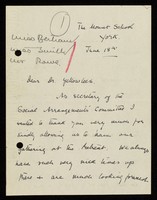 1
Miss Bertram
Miss Smith
Mr Rowe
The Mount School
York
June 19th
Dear Dr Yellowlees
As secretary of the
Social Arrangements Committee I
want to thank you very much for
kindly allowing us to have our
gathering at the Retreat. We always
have such very nice times up
there & are much looking forward